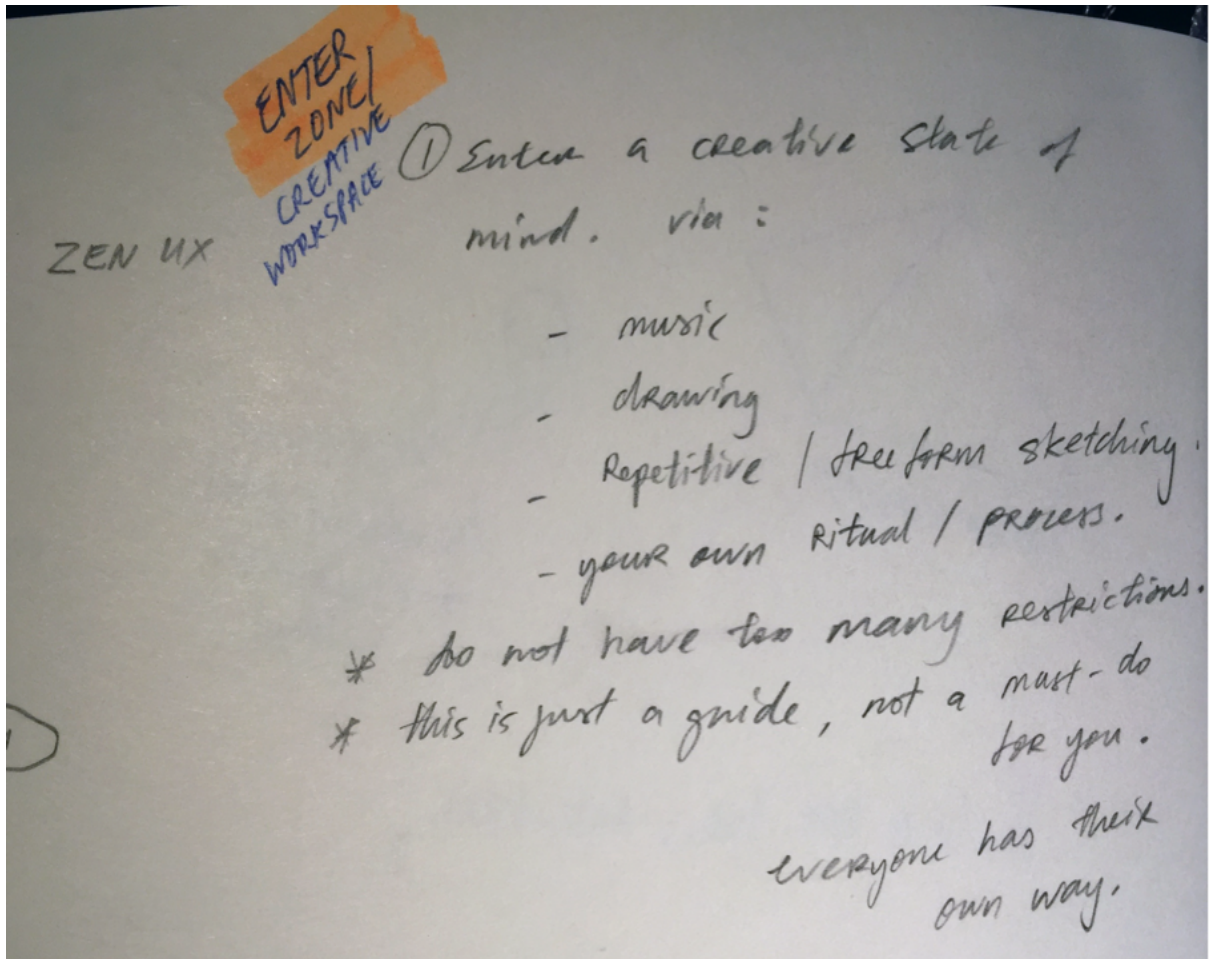 ENTER
ZONE/
CREATIVE
WORKSPACE
ZEN UX
① Enter a creative state of
mind. via :
- music
- drawing
- Repetitive / free form sketching.
- your own Ritual / process.
* do not have too many restrictions.
* this is just a guide, not a must-do
for you.
everyone has their
own way.